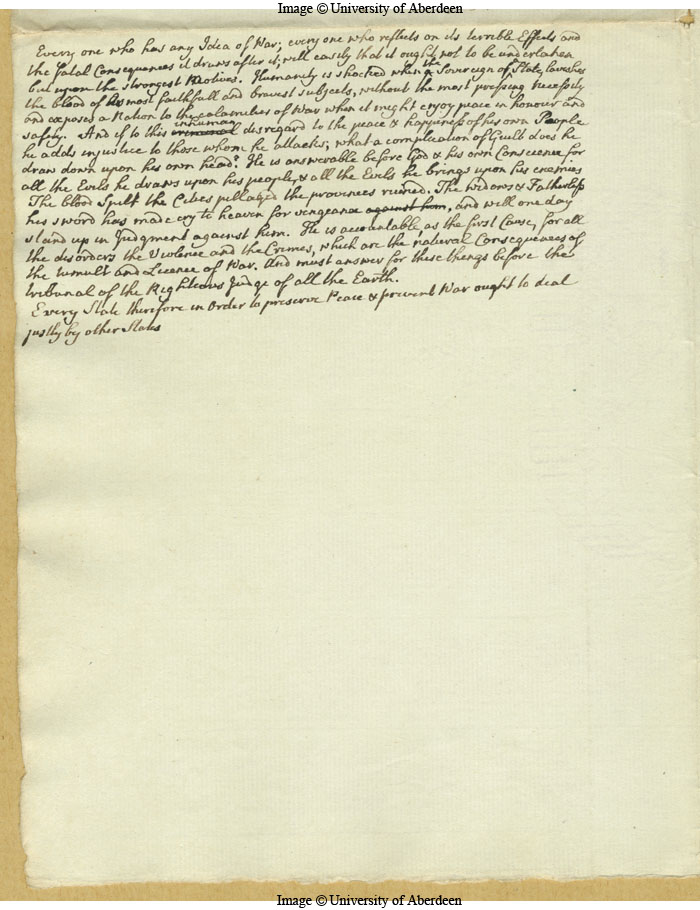 Image © University of Aberdeen
Every one who has any Idea of War; every one who reflects on its terrible Effects and
the fatal Consequences it draws after it; will easily that it ought not to be undertaken
but upon the strongest Motives. Humanity is shocked when the Sovereign of a State lavishes
the blood of his most faithfull and bravest subjects, without the most pressing necessity
and exposes a Nation to the calamities of War when it might enjoy peace in honour and
safety. And if to this inhuman disregard to the peace & happiness of his own People
he adds injustice to those whom he attacks; what a complication of Guilt does he
draw down upon his own head? He is answerable before God & his own Conscience for
all the Evils he draws upon his people, & all the Evils he brings upon his enemies
The blood Spilt the Cities pillaged the provinces ruined. The widows & Fatherless
his sword has made cry to heaven for vengeance against him, and will one day
stand up in Judgment against him. He is accountable as the first Cause, for all
the disorders the Violence and the Crimes, which are the natural Consequences of
the tumult and Licence of War. And must answer for these things before the
tribunal of the Righteous Judge of all the Earth.
Every State therefore in Order to preserve Peace & prevent War ought to deal
justly by other States
Image © University of Aberdeen